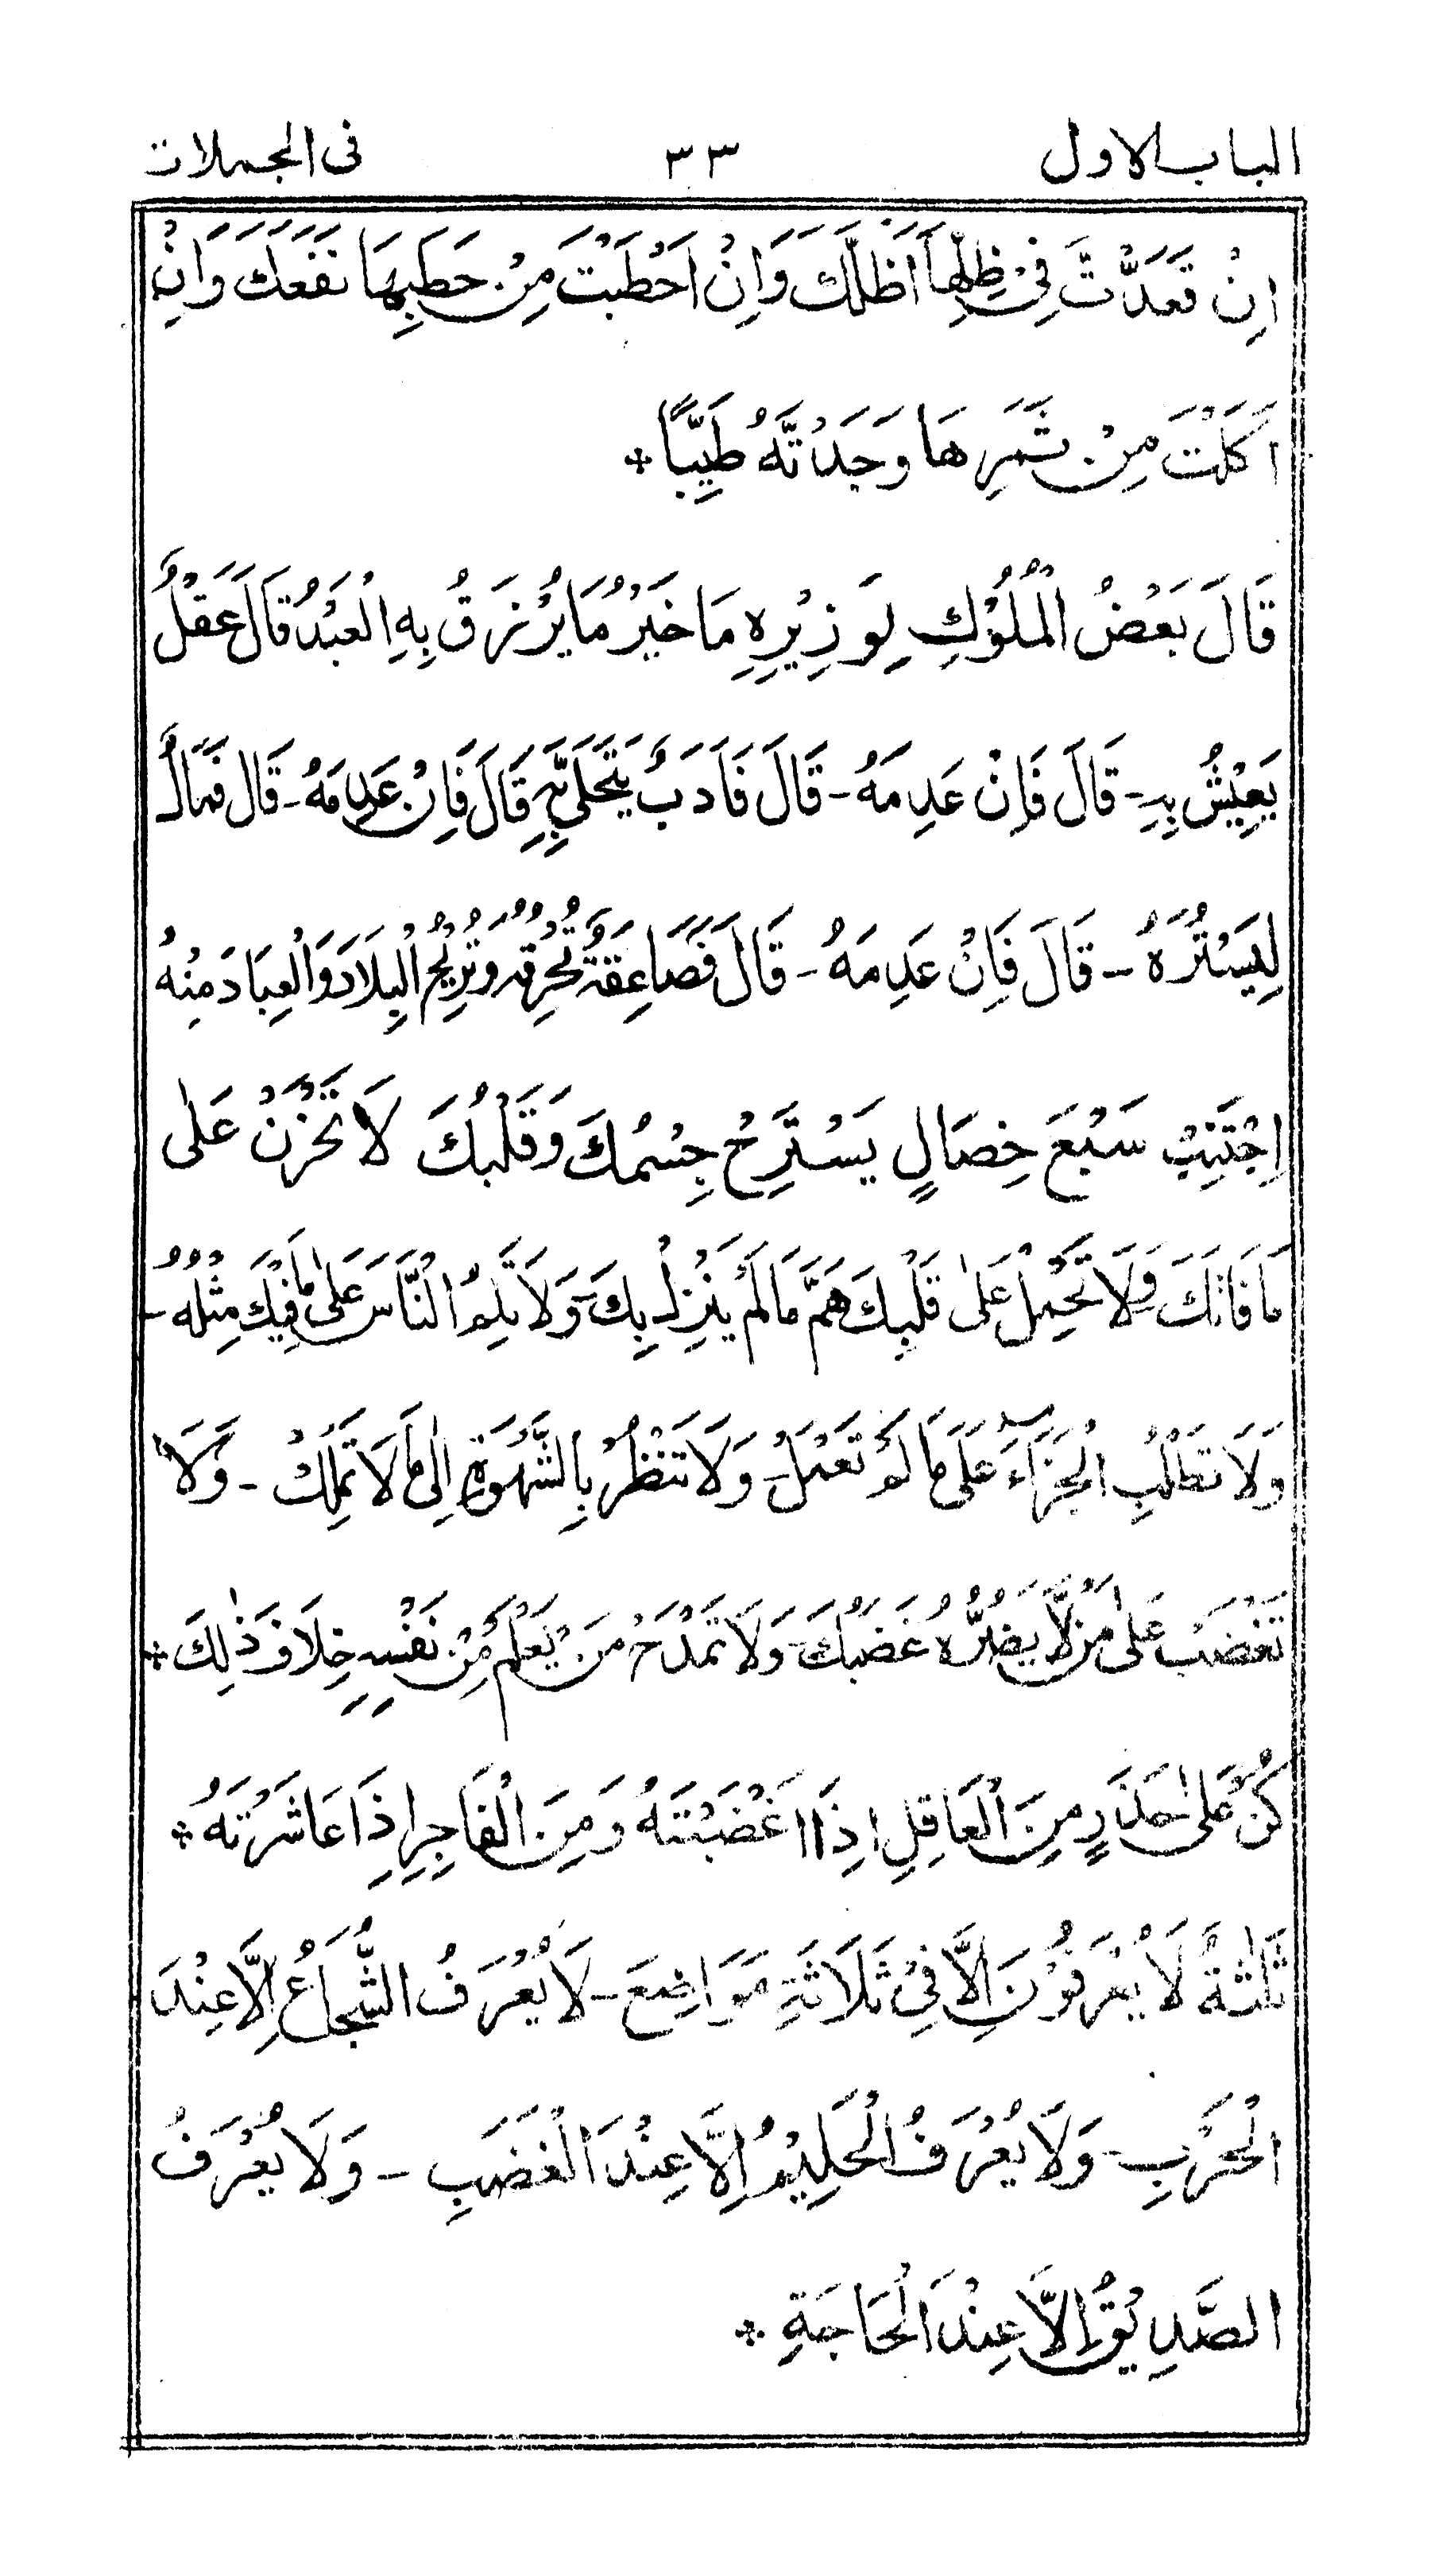 الباب الاول ٣٣ فى الجملات
اِنْ قَعَدْتَّ فِيْ ظِلِّهَا اَظَلَّكَ وَاِنْ اَحْطَبْتَ مِنْ حَطَبِهَا نَفَعَكَ وَاِنْ
اَكَلْتَ مِنْ ثَمَرِهَا وَجَدْتَّهُ طَيِّبًا *
قَالَ بَعْضُ الْمُلُوْكِ لِوَزِيْرِهِ مَا خَيْرُ مَا يُرْزَقُ بِهِ الْعَبْدُ قَالَ عَقْلٌ
يَعِيْشُ بِهِ - قَالَ فَاِنْ عَدِمَهُ - قَالَ فَاَدَبٌ يَتَحَلّٰى بِهِ قَالَ فَاِنْ عَدِمَهُ - قَالَ فَمَالٌ
لِيَسْتُرَهُ - قَالَ فَاِنْ عَدِمَهُ - قَالَ فَصَاعِقَةٌ تُحْرِقُهُ وَتُرِيْحُ الْبِلَادَ وَالْعِبَادَ مِنْهُ
اِجْتَنِبْ سَبْعَ خِصَالٍ يَسْتَرِحْ جِسْمُكَ وَقَلْبُكَ لَا تَحْزَنْ عَلٰى
مَا فَاتَكَ وَلَا تَحْمِلْ عَلٰى قَلْبِكَ هَمَّ مَا لَمْ يَنْزِلْ بِكَ - وَلَا تَلُمِ النَّاسَ عَلٰى مَا فِيْكَ مِثْلُهُ -
وَلَا تَطْلُبِ الْجَزَاءَ عَلٰى مَا لَمْ تَعْمَلْ - وَلَا تَنْظُرْ بِالشَّهْوَةِ اِلٰى مَا لَا تَمْلِكْ - وَلَا
تَغْضَبْ عَلٰى مَنْ لَّا يَضُرُّهُ غَضَبُكَ - وَلَا تَمْدَحْ مَنْ يَعْلَمُ مِنْ نَفْسِهِ خِلَافَ ذٰلِكَ *
كُنْ عَلٰى حَذَرٍ مِنَ الْعَاقِلِ اِذَا اَغْضَبْتَهُ وَمِنَ الْفَاجِرِ اِذَا عَاشَرْتَهُ *
ثَلٰثَةٌ لَا يُعْرَفُوْنَ اِلَّا فِيْ ثَلَاثَةِ مَوَاضِعَ - لَا يُعْرَفُ الشُّجَاعُ اِلَّا عِنْدَ
الْحَرْبِ - وَلَا يُعْرَفُ الْحَلِيْمُ اِلَّا عِنْدَ الْغَضَبِ - وَلَا يُعْرَفُ
الصَّدِيْقُ اِلَّا عِنْدَ الْحَاجَةِ *